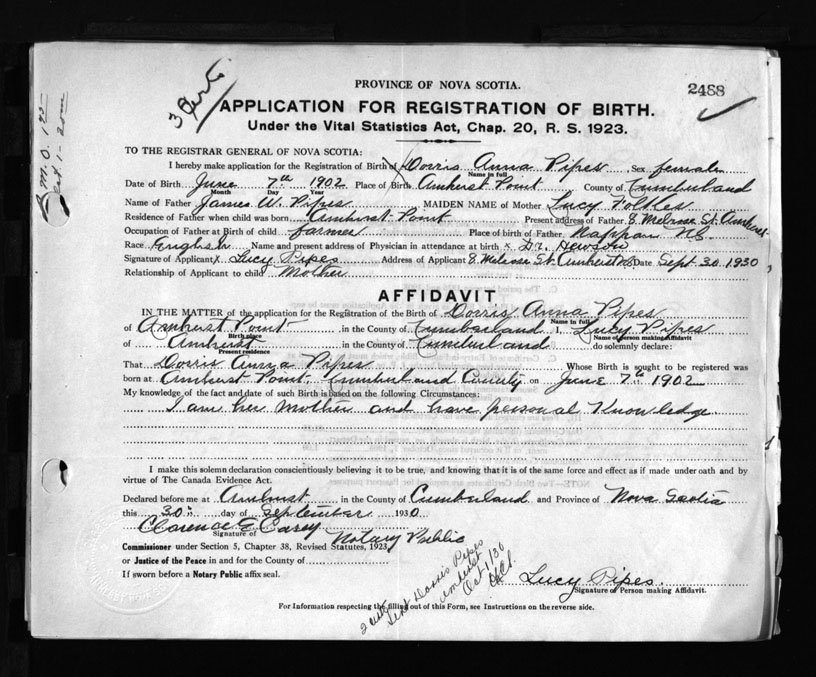 PROVINCE OF NOVA SCOTIA.
2488
3 Certs
APPLICATION FOR REGISTRATION OF BIRTH.
Under the Vital Statistics Act, Chap. 20, R. S. 1923.
TO THE REGISTRAR GENERAL OF NOVA SCOTIA:
I hereby make application for the Registration of Birth of Dorris Anna Pipes Sex female
Name in full
Date of Birth June 7th 1902 Place of Birth Amherst Point County of Cumberland
Month Day Year
Name of Father James W. Pipes MAIDEN NAME of Mother Lucy
Residence of Father when child was born Amherst Point Present address of Father 8 Melrose St. Amherst
Occupation of Father at Birth of child farmer Place of birth of Father Nappan NS.
Race English Name and present address of Physician in attendance at birth x Dr. Hewson
Signature of Applicant x Lucy Pipes Address of Applicant 8 Melrose St. Amherst NS Date Sept. 30 1930
Relationship of Applicant to child Mother
AFFIDAVIT
IN THE MATTER of the application for the Registration of the Birth of Dorris Anna Pipes
Name in full
of Amherst Point in the County of Cumberland I, Lucy Pipes
Birth place Name of person making Affidavit
of Amherst in the County of Cumberland do solemnly declare:
Present residence
That Dorris Anna Pipes Whose Birth is sought to be registered was
born at Amherst Point Cumberland County on June 7th 1902
My knowledge of the fact and date of such Birth is based on the following Circumstances:
I am her mother and have personal Knowledge.
I make this solemn declaration conscientiously believing it to be true, and knowing that it is of the same force and effect as if made under oath and by
virtue of The Canada Evidence Act.
Declared before me at Amherst in the County of Cumberland and Province of Nova Scotia
this 30th day of September 1930
Clarence E Casey
Signature of
Notary Public
Commissioner under Section 5, Chapter 38, Revised Statutes, 1923,
or Justice of the Peace in and for the County of
If sworn before a Notary Public affix seal.
Lucy Pipes.
Signature of Person making Affidavit.
Sent Dorris Pipes
Amherst
Oct 1/30
For Information respecting the filling out of this Form, see Instructions on the reverse side.